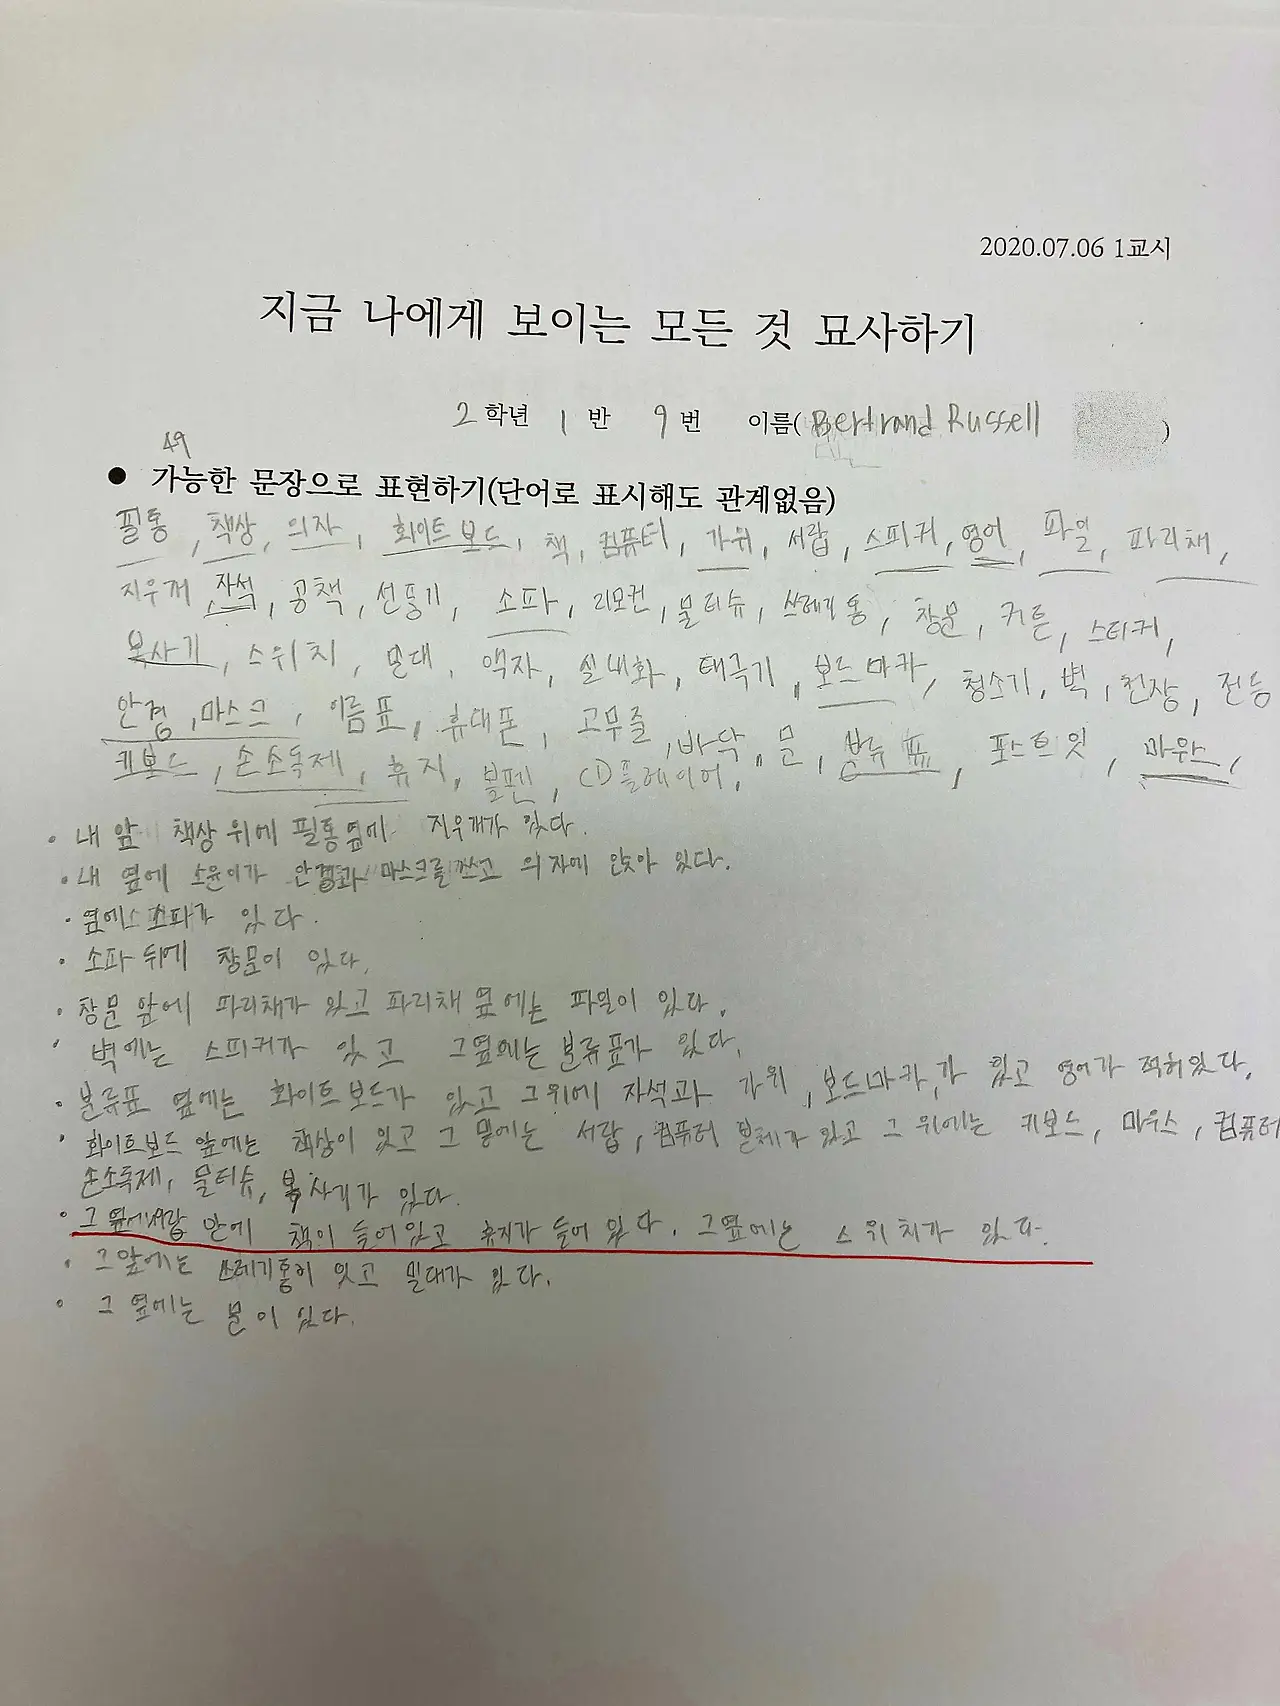 2020.07.06 1교시
지금 나에게 보이는 모든 것 묘사하기
2 학년 1 반 9 번 이름( Bertrand Russell )
49
● 가능한 문장으로 표현하기(단어로 표시해도 관계없음)
필통, 책상, 의자, 화이트 보드, 책, 컴퓨터, 가위, 서랍, 스피커, 영어, 파일, 파리채,
지우개 자석, 공책, 선풍기, 소파, 리모컨, 물티슈, 쓰레기통, 창문, 커튼, 스티커,
복사기, 스위치, 밀대, 액자, 실내화, 태극기, 보드마카, 청소기, 벽, 천장, 전등
안경, 마스크, 이름표, 휴대폰, 고무줄, 바닥, 문, 분류표, 포스트잇, 마우스,
키보드, 손소독제, 휴지, 볼펜, CD플레이어,
· 내 앞 책상 위에 필통옆에 지우개가 있다.
· 내 옆에 소윤이가 안경과 마스크를 쓰고 의자에 앉아 있다.
· 옆에 소파가 있다.
· 소파 뒤에 창문이 있다.
· 창문 앞에 파리채가 있고 파리채 옆에는 파일이 있다.
· 벽에는 스피커가 있고 그옆에는 분류표가 있다.
· 분류표 옆에는 화이트보드가 있고 그위에 자석과 가위, 보드마카,가 있고 영어가 적혀있다.
· 화이트보드 앞에는 책상이 있고 그 밑에는 서랍, 컴퓨터 본체가 있고 그 위에는 키보드, 마우스, 컴퓨터
손소독제, 물티슈, 복사기가 있다.
· 그 옆에서랍 안에 책이 들어있고 휴지가 들어 있다. 그옆에는 스위치가 있다.
· 그앞에는 쓰레기통이 있고 밀대가 있다.
· 그 옆에는 문이 있다.